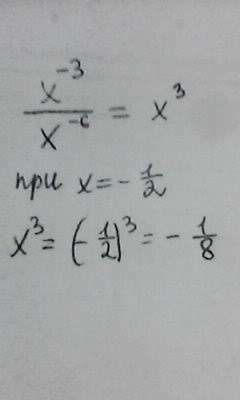 x⁻³/x⁻⁶ = x³
при x = -1/2
x³ = (-1/2)³ = -1/8